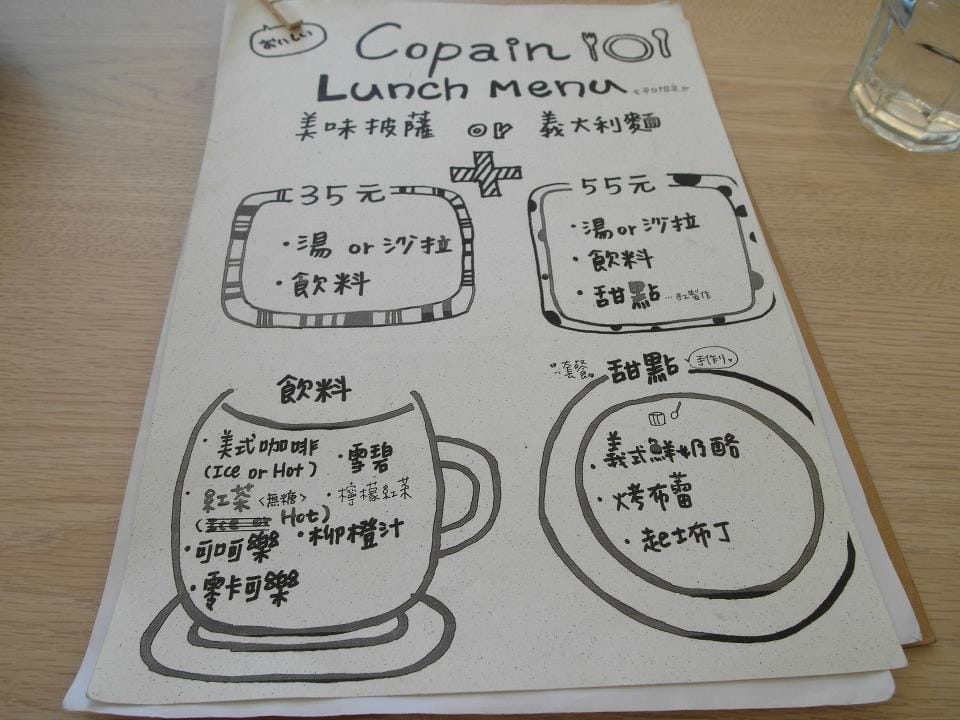 おいしい
Copain
Lunch menu
美味披薩 or 義大利麵
35元
・湯 or 沙拉
・飲料
55元
・湯 or 沙拉
・飲料
・甜點
飲料
・美式咖啡
(Ice or Hot)
・雪碧
・紅茶<無糖>
(Ice or Hot)
・檸檬紅茶
・可口可樂
・柳橙汁
・零卡可樂
"套餐" 甜點 手作り
・義式鮮奶酪
・烤布蕾
・起士布丁